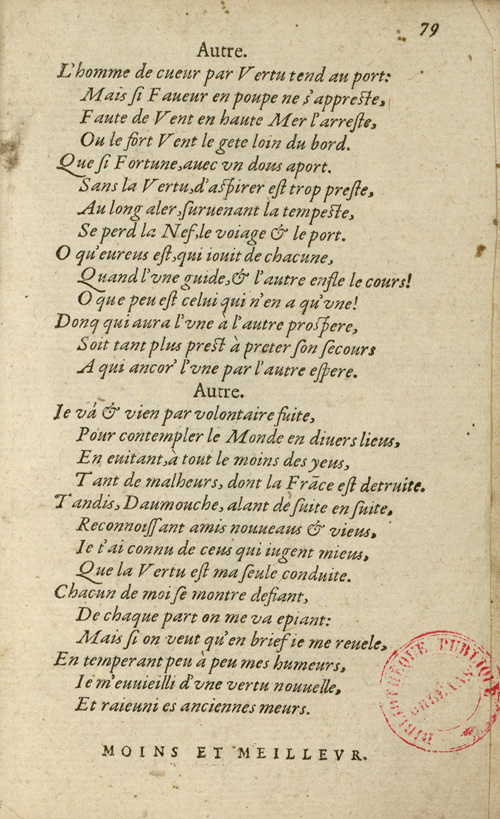 79
Autre.
L'homme de cueur par Vertu tend au port:
Mais ſi Faueur en poupe ne s'appreſte,
Faute de Vent en haute Mer l'arreſte,
Ou le fort Vent le gete loin du bord.
Que ſi Fortune, auec vn dous aport.
Sans la Vertu, d'aſpirer eſt trop preſte,
Au long aler, ſuruenant la tempeſte,
Se perd la Nef, le voiage & le port.
O qu'eureus eſt, qui iouit de chacune,
Quand l'vne guide, & l'autre enfle le cours!
O que peu eſt celui qui n'en a qu'vne!
Donq qui aura l'vne à l'autre proſpere,
Soit tant plus preſt à preter ſon ſecours
A qui ancor' l'vne par l'autre eſpere.
Autre.
Ie vá & vien par volontaire fuite,
Pour contempler le Monde en diuers lieus,
En euitant, à tout le moins des yeus,
Tant de malheurs, dont la Frãce eſt detruite.
Tandis, Daumouche, alant de ſuite en ſuite,
Reconnoiſſant amis nouueaus & vieus,
Ie t'ai connu de ceus qui iugent mieus,
Que la Vertu eſt ma ſeule conduite.
Chacun de moi ſe montre defiant,
De chaque part on me va epiant:
Mais ſi on veut qu'en brief ie me reuele,
En temperant peu à peu mes humeurs,
Ie m'euuieilli d'vne vertu nouuelle,
Et raieuni es anciennes meurs.
MOINS ET MEILLEVR.
BIBLIOTHÈQUE PUBLIQUE
ORLÉANS